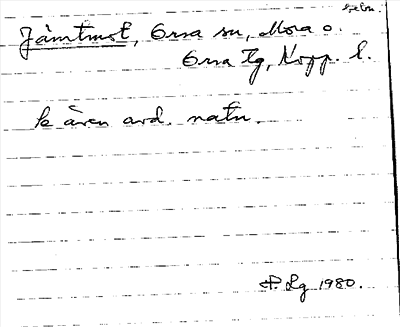 Jämtmot, Orsa sn, Mora o.
Orsa Tg, Kopp. l.
Se även ard. natn.
P. Lg 1980.